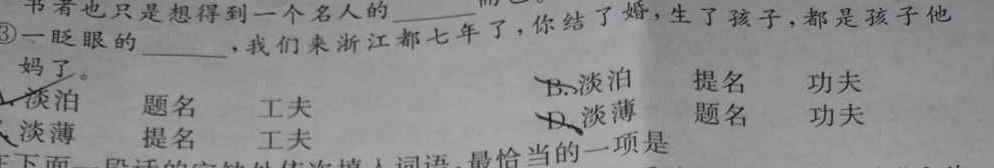 书者也只是想得到一个名人的______而已。
③一眨眼的______,我们来浙江都七年了,你结了婚,生了孩子,都是孩子他
妈了。
A.淡泊 题名 工夫 B.淡泊 提名 功夫
淡薄 提名 工夫 D.淡薄 题名 功夫
下面一段话的空缺处依次填入词语,最恰当的一项是